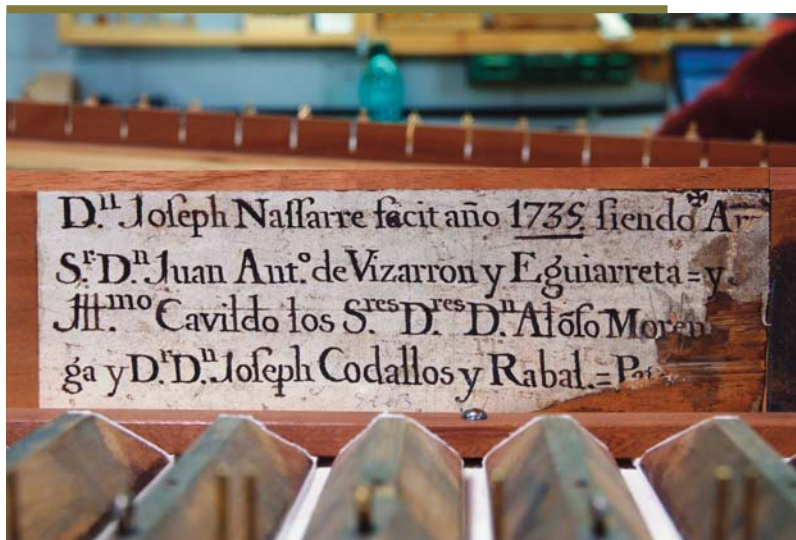 D.ⁿ Joſeph Naſſarre fecit año 1735. ſiendo
S.ʳ D.ⁿ Juan Ant.º de Vizarron y Eguiarreta = y
Ill.ᵐᵒ Cavildo los Sʳᵉˢ Dʳᵉˢ D.ⁿ Alõſo
ga y D.ʳ D.ⁿ Joſeph Codallos y Rabal. =